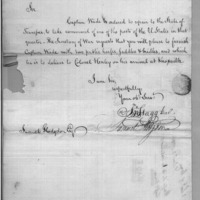 Sir
Captain Wade is ordered to repair to the State of
Tennessee to take command of one of the posts of the U. States in that
quarter. The Secretary of War requests that you will please to furnish
Captain Wade with two public horses, saddles & bridles, and which
he is to deliver to Colonel Henley on his arrival at Knoxville
I am Sir
respectfully
Your ob. Serv.
Samuel Hodgdon Esq